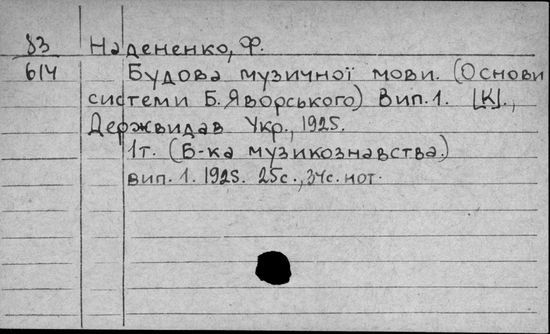 83 Надененко, Ф.
614 Будова музичної мови. (Основи
системи Б. Яворського) Вип. 1. [К].,
Держвидав Укр., 1925.
1т. (Б-ка музикознавства.)
вип. 1. 1925. 25с., 34с. нот.